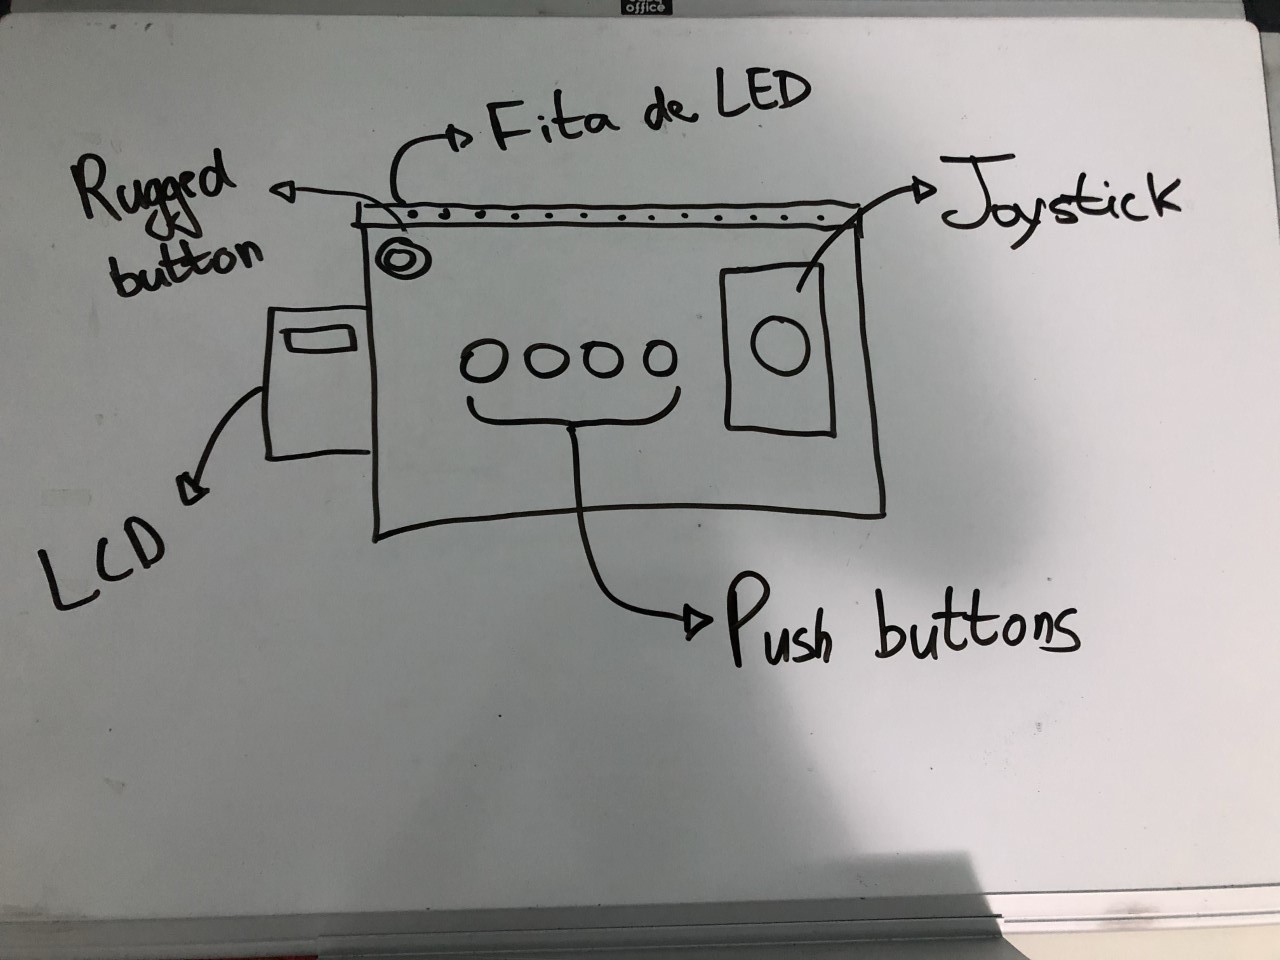 office
Fita de LED
Rugged
button
Joystick
LCD
Push buttons